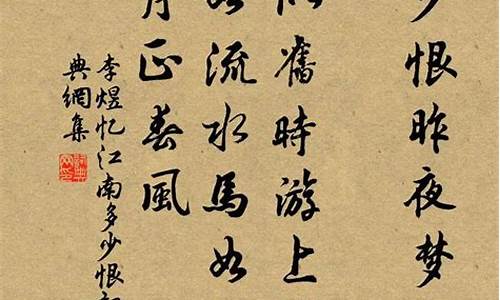 少恨昨夜梦
似舊時游上
如流水馬如
月正春風
李煜忆江南多少恨
典網集